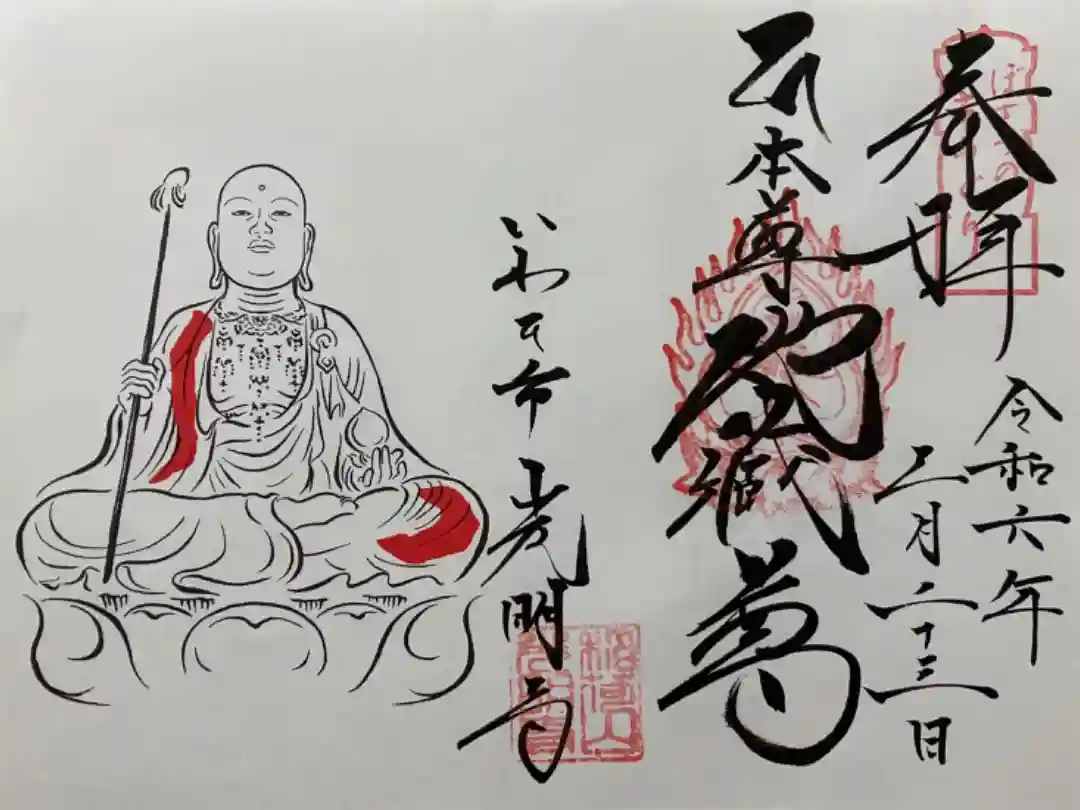 奉拝
令和六年
二月二十三日
本尊 地蔵尊
いわき市 光明寺